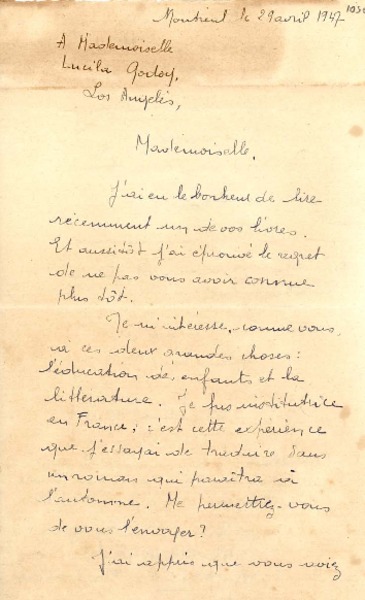 Montreal le 29 avril 1947
A Mademoiselle
Lucila Godoy,
Los Angelès,
Mademoiselle,
J'ai eu le bonheur de lire
récemment un de vos livres.
Et aussitôt j'ai éprouvé le regret
de ne pas vous avoir connue
plus tôt.
Je m'intéresse, comme vous,
à ces deux grandes choses :
l'éducation des enfants et la
littérature. Je fus institutrice
en France ; c'est cette expérience
que j'essayai de traduire dans
un roman qui paraîtra à
l'automne. Me permettrez-vous
de vous l'envoyer ?
J'ai appris que vous aviez